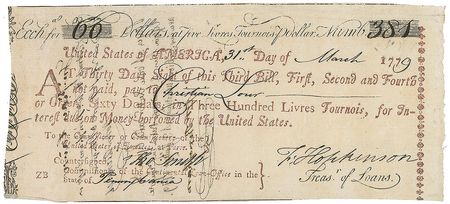 Exch. for 60 Dollars, at five Livres Tournois ⅌ Dollar. Numb. 381
United States of AMERICA, 31st Day of March 1779
AT Thirty Days Sight of this Third Bill, First, Second and Fourth
not paid, pay to Christian Lour
or Order, Sixty Dollars, in Three Hundred Livres Tournois, for In-
terest due on Money borrowed by the United States.
To the Commissioner or Commissioners of the
United States of America, at Paris.
Countersigned, Tho Smith
F. Hopkinson
ZB Commissioner of the Continental Loan-Office in the
Treasr. of Loans.
State of Pennsylvania